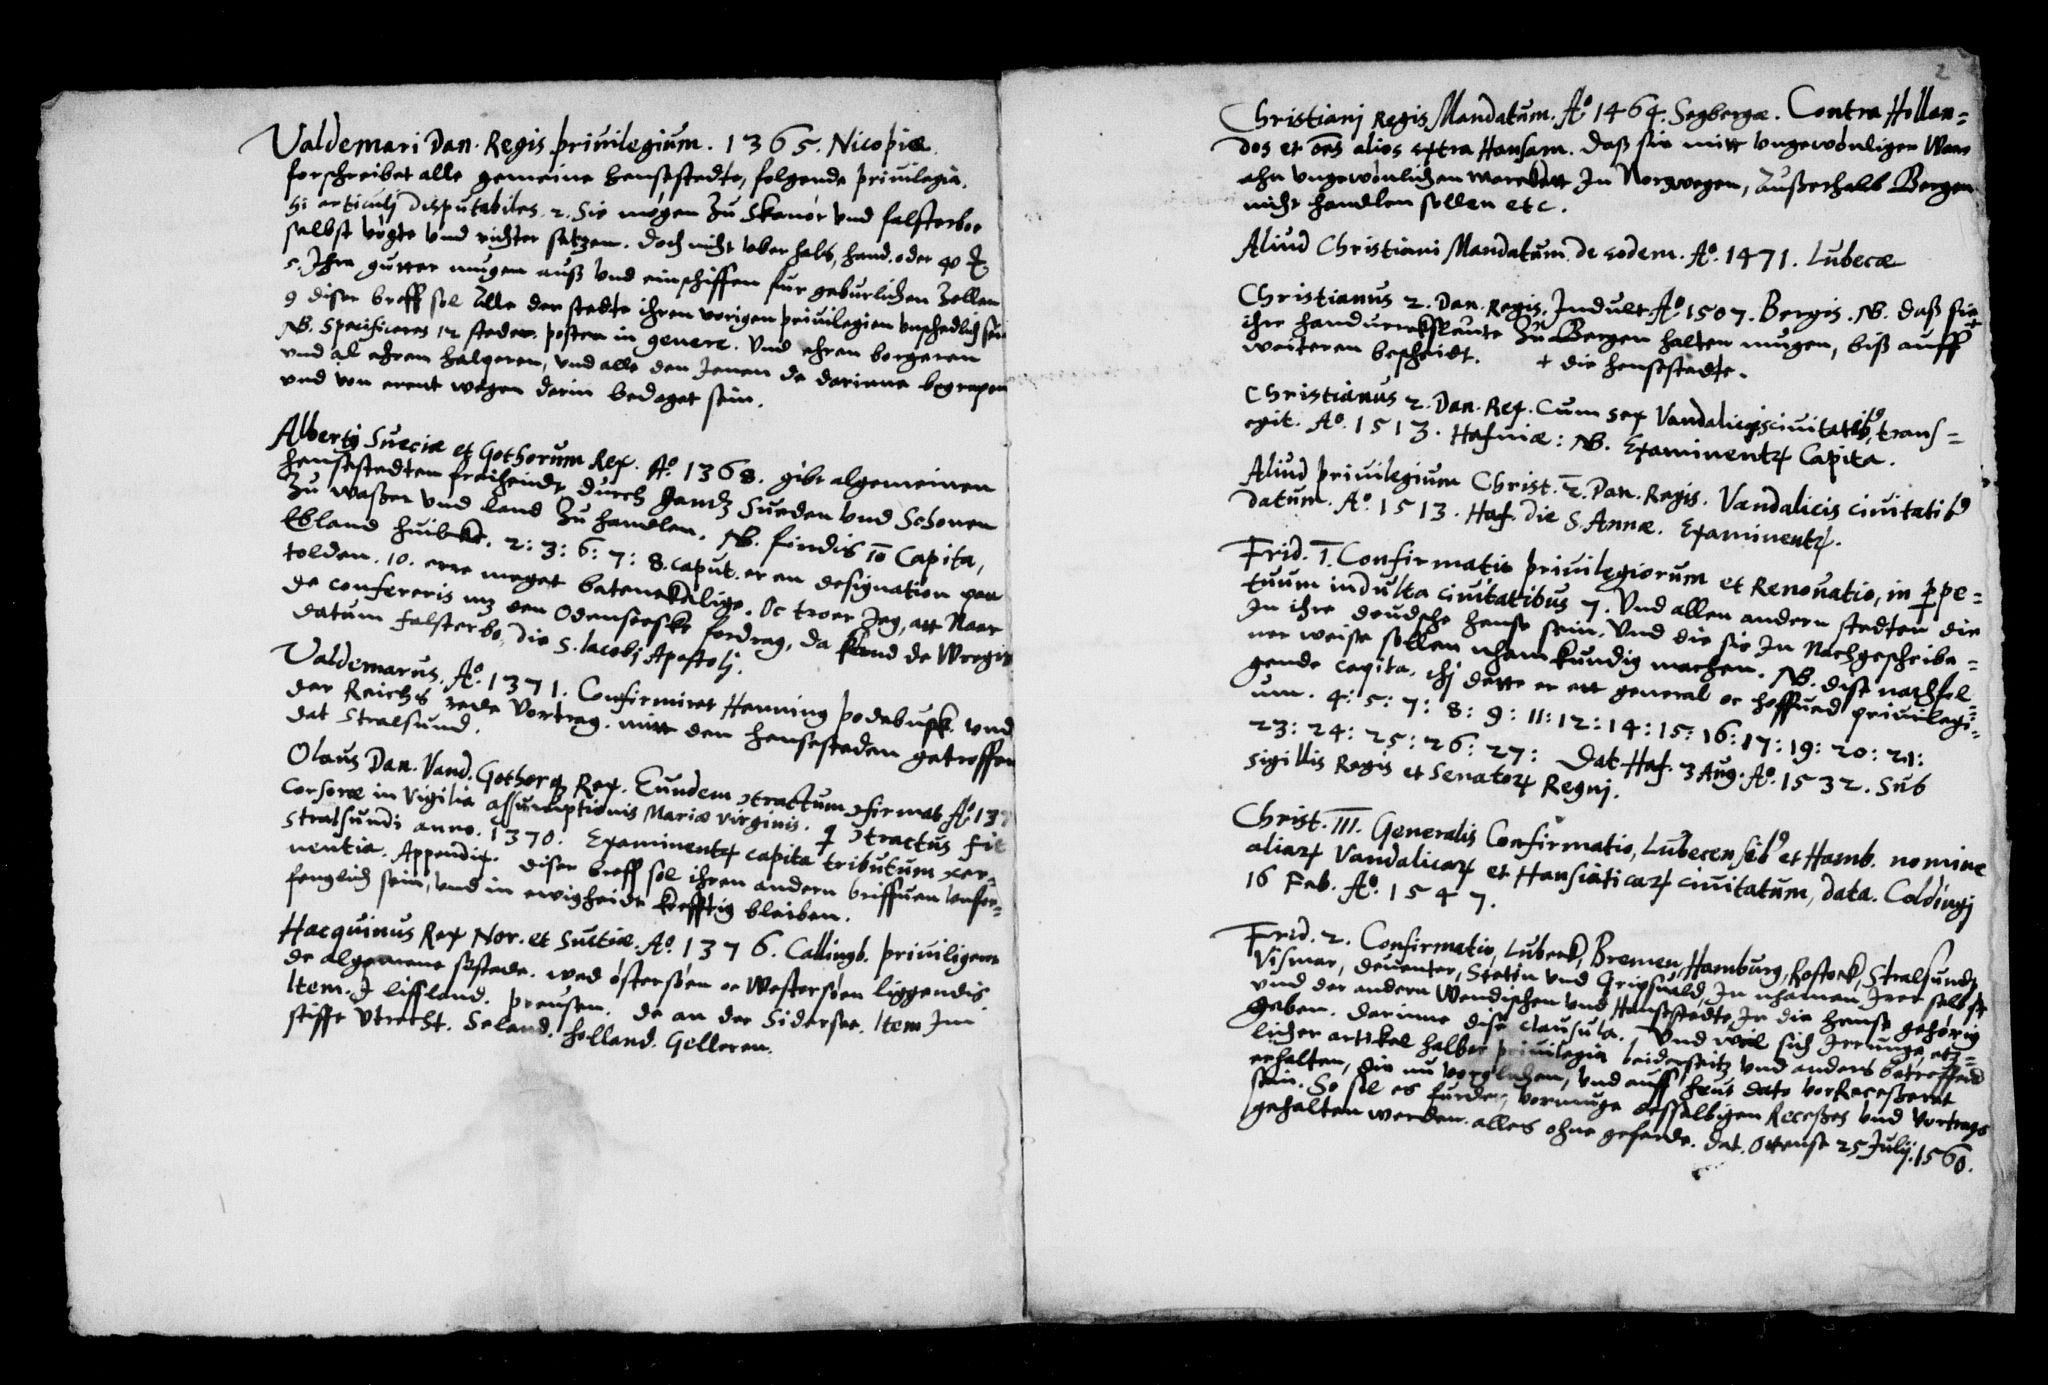 Valdemari Dan. Regis priuilegium. 1365. Nicopiæ.
forschreibet alle gemeine hensestedte, folgende priuilegia.
hi articulj disputabiles. 2. Sie mögen zu Skanör vnd falsterboe
selbst vögte vnd richter setzen. doch nicht vber hals, hand oder
5. Ihre gutter mugen auß vnd einschiffen fur geburlichen Zollen
9 diser breff sol alle der stedte ihren vorigen priuilegien vnschedlich sein
NB. Specificeres 12 steder. posten in genere. Vnd ehren borgeren
vnd al ehrem halgeren, vnd alle den Jenen de darinne begrepen
vnd von erent wegen darin bedaget sein.
Albertq Sueciæ et Gothorum Rex. Aº. 1368. gibt algemeinen
hensestedten freiheidt durch gantz Sueden vnd Schonen
Zu waßer vnd land Zu handlen. NB. findis 10 Capita,
2: 3: 6: 7: 8. caput. er en designation paa
tolden. 10. erre meget betenckelige. Oc troer Jeg, att Naar
de confereris mz den Odenseeske fordrag, da
datum falsterbo, die S. Iacobj Apostolj.
Valdemarus. Aº. 1371. Confirmiret Henning podebusk. vnd
der Reichs rede Vortrag. mitt den hensesteden getroffen
dat Stralsund.
Olaus Dan. Vand. Gothorq Rex. Eundem ɔtractum ɔfirmat Aº. 137
Corsoræ in Vigilia assumptionis Mariæ virginis. ɔtractus fit
Stralsundi anno. 1370. Examinentr capita tributum
nentia. Appendix. diser breff sol ihren andern briffuen vnfor-
fenglich sein, vnd in ewigheidt krefftig bleiben.
Hacquinus Rex Nor. et Sueciæ. Aº. 1376. Callingb. priuiligerer
de algemene sestede. wed östersöen oc Westersöen liggendis.
Item. J liffland. preusen. de an der Sidersee. Item Jm
stiffte Vtrecht. Seland. holland. Gelleren.
2
Christianj Regis Mandatum. Aº 1464. Segbergæ. Contra Hollan=
dos et oēs alios extra Hansam. daß sie mitt vngewönligen Ware
ahn vngewönlichen Jn Norwegen, außerhalb Bergen
nicht handlen sollen etc.
Aliud Christiani Mandatum de eodem. Aº. 1471. Lubecæ
Christianus 2. Dan. Regis. Indult. Aº. 1507. Bergis. NB. daß sie +
ihre Zu Bergen halten mugen, biß auff
weiteren bescheidt. + die hensestedte.
Christianus 2. Dan. Rex. Cum sex Vandalicis ciuitatib9, trans=
egit. Aº. 1513. Hafniæ: NB. Examinentr Capita.
Aliud priuilegium Christ. 2. Dan. Regis. Vandalicis ciuitatib9
datum. Aº. 1513. Haf. die S. Annæ. Examinentr.
Frid. I. Confirmatio priuilegiorum et Renouatio, in ppe=
tuum indulta ciuitatibus 7. Vnd allen andern stedten die
Jn ihre deudsche hense sein. Vnd die sie Jn Nachgeschribe=
ner weise sollen nhamkundig machen. NB. dise nachfol=
gende capita. thj dette er ett general oc hoffued priuilegi=
um. 4: 5: 7: 8: 9: 11: 12: 14: 15: 16: 17: 19: 20: 21:
23: 24: 25: 26: 27: Dat Haf. 3 Aug. Aº. 1532. Sub
sigillis Regis et Senator. Regnj.
Christ. III. Generalis Confirmatio, Lubecensib9 et Hamb. nomine
aliar. Vandalicar. et Hansiaticar. ciuitatum, data. Coldingj
16 Feb. Aº. 1547.
Frid. 2. Confirmatio, Lubeck, Bremen, Hamburg, Rostock, Stralsund,
Vismar, deuenter, Stetin vnd Gripsuald, Jn nhamen Jrer selbst
vnd der andern Wendischen vnd Hansestedte, Jn die hense gehörig
geben. darinne dise clausula. Vnd weil sich Jrrunge, etz=
licher artikel halber priuilegia beiderseitz vnd anders betreffend
erhalten, die nu vorglichen, vnd auff heut dato vorReceßeret
sein. So sol es furder, vormuge desselbigen Receßes vnd Vortrags
gehalten werden. alles ohne geferde. dat. Ottense 25 Julij. 1560.